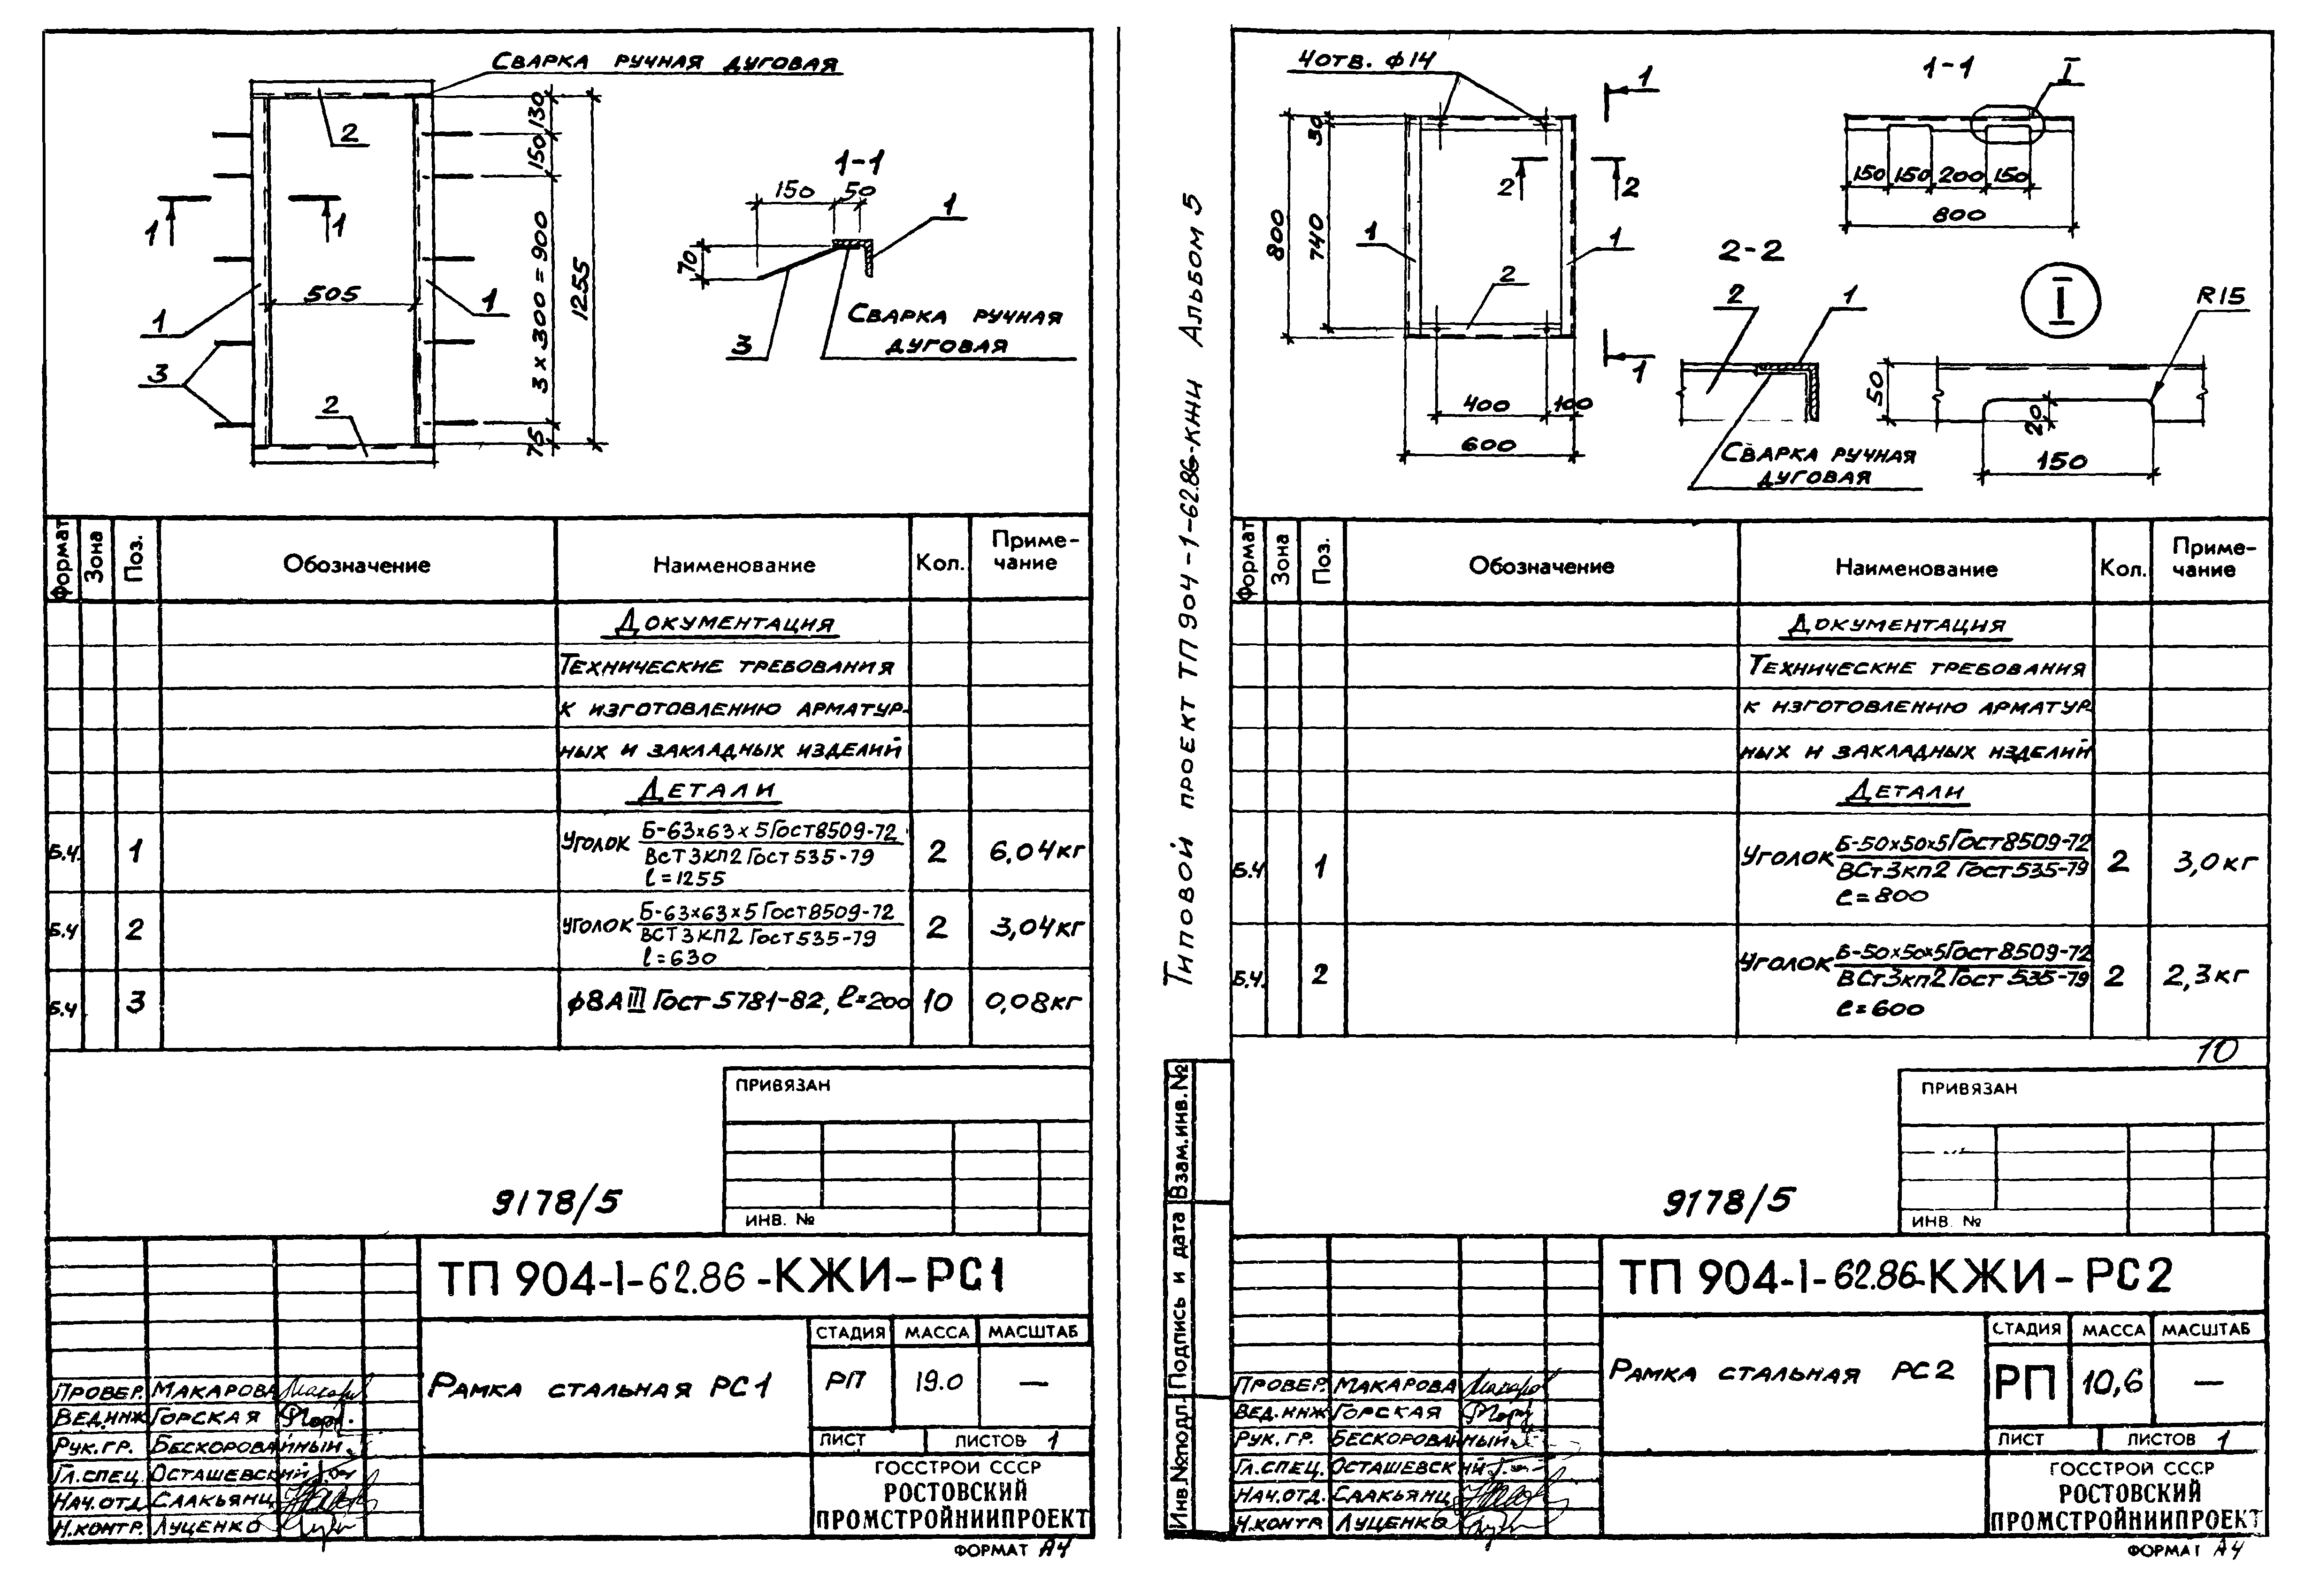 Сварка ручная дуговая
2
130
150
3 × 300 = 900
75
1255
1
1
505
1
1
3
2
1-1
150
50
70
1
3
Сварка ручная
дуговая
Формат
Зона
Поз.
Обозначение
Наименование
Кол.
Приме-
чание
Документация
Технические требования
к изготовлению арматур-
ных и закладных изделий
Детали
Б.Ч. 1 Уголок Б-63×63×5 Гост 8509-72 2 6,04кг
ВСт3кп2 Гост 535-79
l=1255
Б.Ч 2 Уголок Б-63×63×5 Гост 8509-72 2 3,04кг
ВСт3кп2 Гост 535-79
l=630
Б.Ч 3 ф8АIII Гост 5781-82, l=200 10 0,08кг
ПРИВЯЗАН
ИНВ. №
9178/5
ТП 904-1-62.86-КЖИ-РС1
Рамка стальная РС1
СТАДИЯ МАССА МАСШТАБ
РП 19.0 —
ЛИСТ ЛИСТОВ 1
ГОССТРОЙ СССР
РОСТОВСКИЙ
ПРОМСТРОЙНИИПРОЕКТ
Провер. Макарова
Вед.инж Горская
Рук.гр. Бескорованный
Гл.спец. Осташевский
Нач.отд Саакьянц
Н.контр. Луценко
ФОРМАТ А4
Типовой проект ТП 904-1-62.86-КЖИ Альбом 5
4отв. ф14
1
1
30
740
800
2
2
1
1
2
400
100
600
1-1
I
150 150 200 150
800
2-2
2
1
Сварка ручная
дуговая
I
R15
50
20
150
Формат
Зона
Поз.
Обозначение
Наименование
Кол.
Приме-
чание
Документация
Технические требования
к изготовлению арматур
ных и закладных изделий
Детали
Б.Ч 1 Уголок Б-50×50×5 Гост 8509-72 2 3,0кг
ВСт3кп2 Гост 535-79
l=800
Б.Ч. 2 Уголок Б-50×50×5 Гост 8509-72 2 2,3кг
ВСт3кп2 Гост 535-79
l=600
10
ПРИВЯЗАН
ИНВ. №
9178/5
Взам.инв.№
Подпись и дата
Инв.№подл.
ТП 904-1-62.86-КЖИ-РС2
Рамка стальная РС2
СТАДИЯ МАССА МАСШТАБ
РП 10,6 —
ЛИСТ ЛИСТОВ 1
ГОССТРОЙ СССР
РОСТОВСКИЙ
ПРОМСТРОЙНИИПРОЕКТ
Провер. Макарова
Вед.инж Горская
Рук.гр. Бескорованный
Гл.спец. Осташевский
Нач.отд. Саакьянц
Н.контр Луценко
ФОРМАТ А4